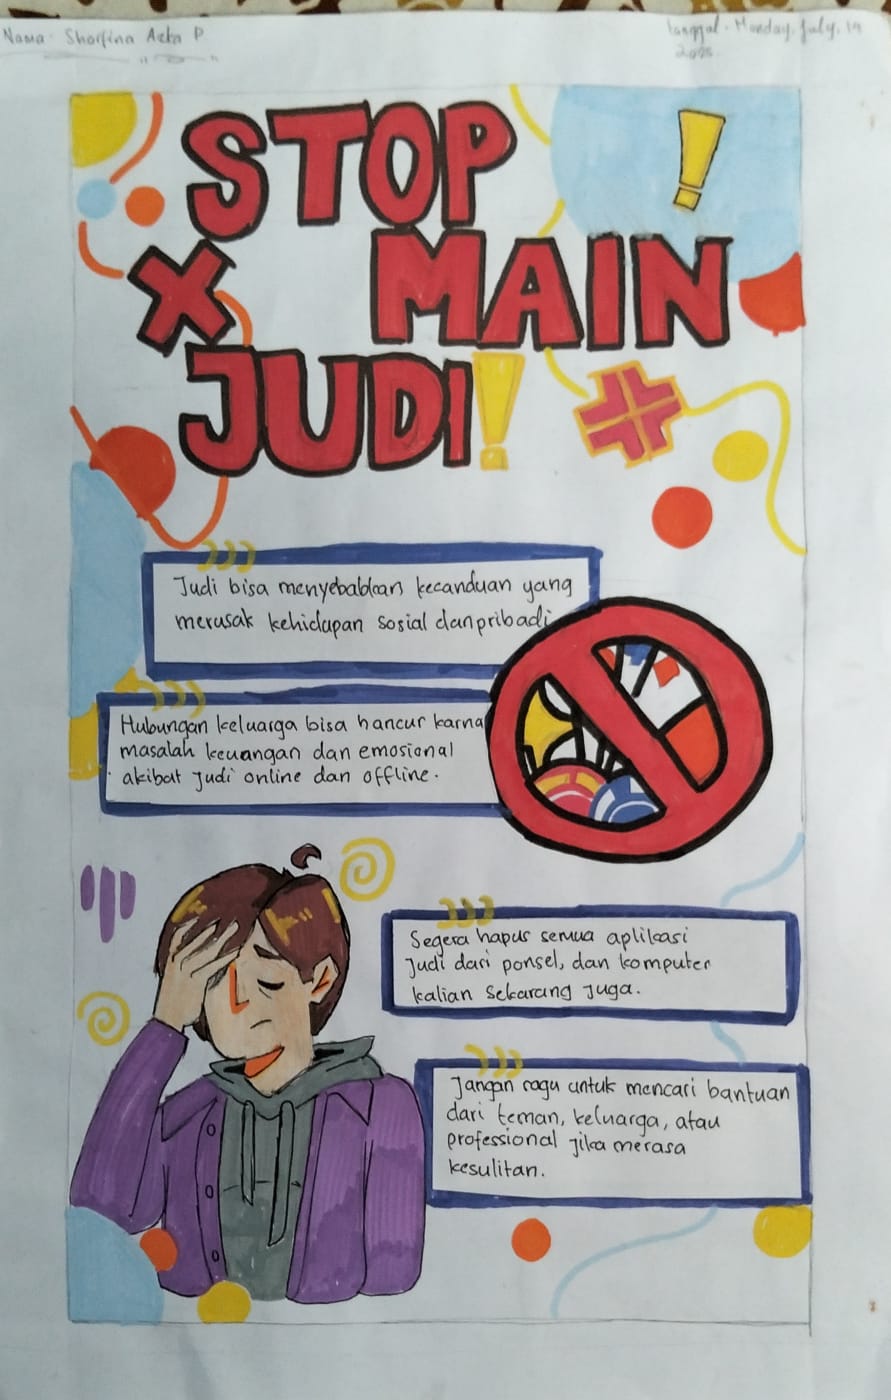 Nama: Sharfina Azka P
tanggal: Monday, July, 14
STOP
MAIN
JUDI!
Judi bisa menyebabkan kecanduan yang
merusak kehidupan sosial dan pribadi
Hubungan keluarga bisa hancur karna
masalah keuangan dan emosional
akibat judi online dan offline.
Segera hapus semua aplikasi
judi dari ponsel, dan komputer
kalian sekarang juga.
Jangan ragu untuk mencari bantuan
dari teman, keluarga, atau
professional jika merasa
kesulitan.